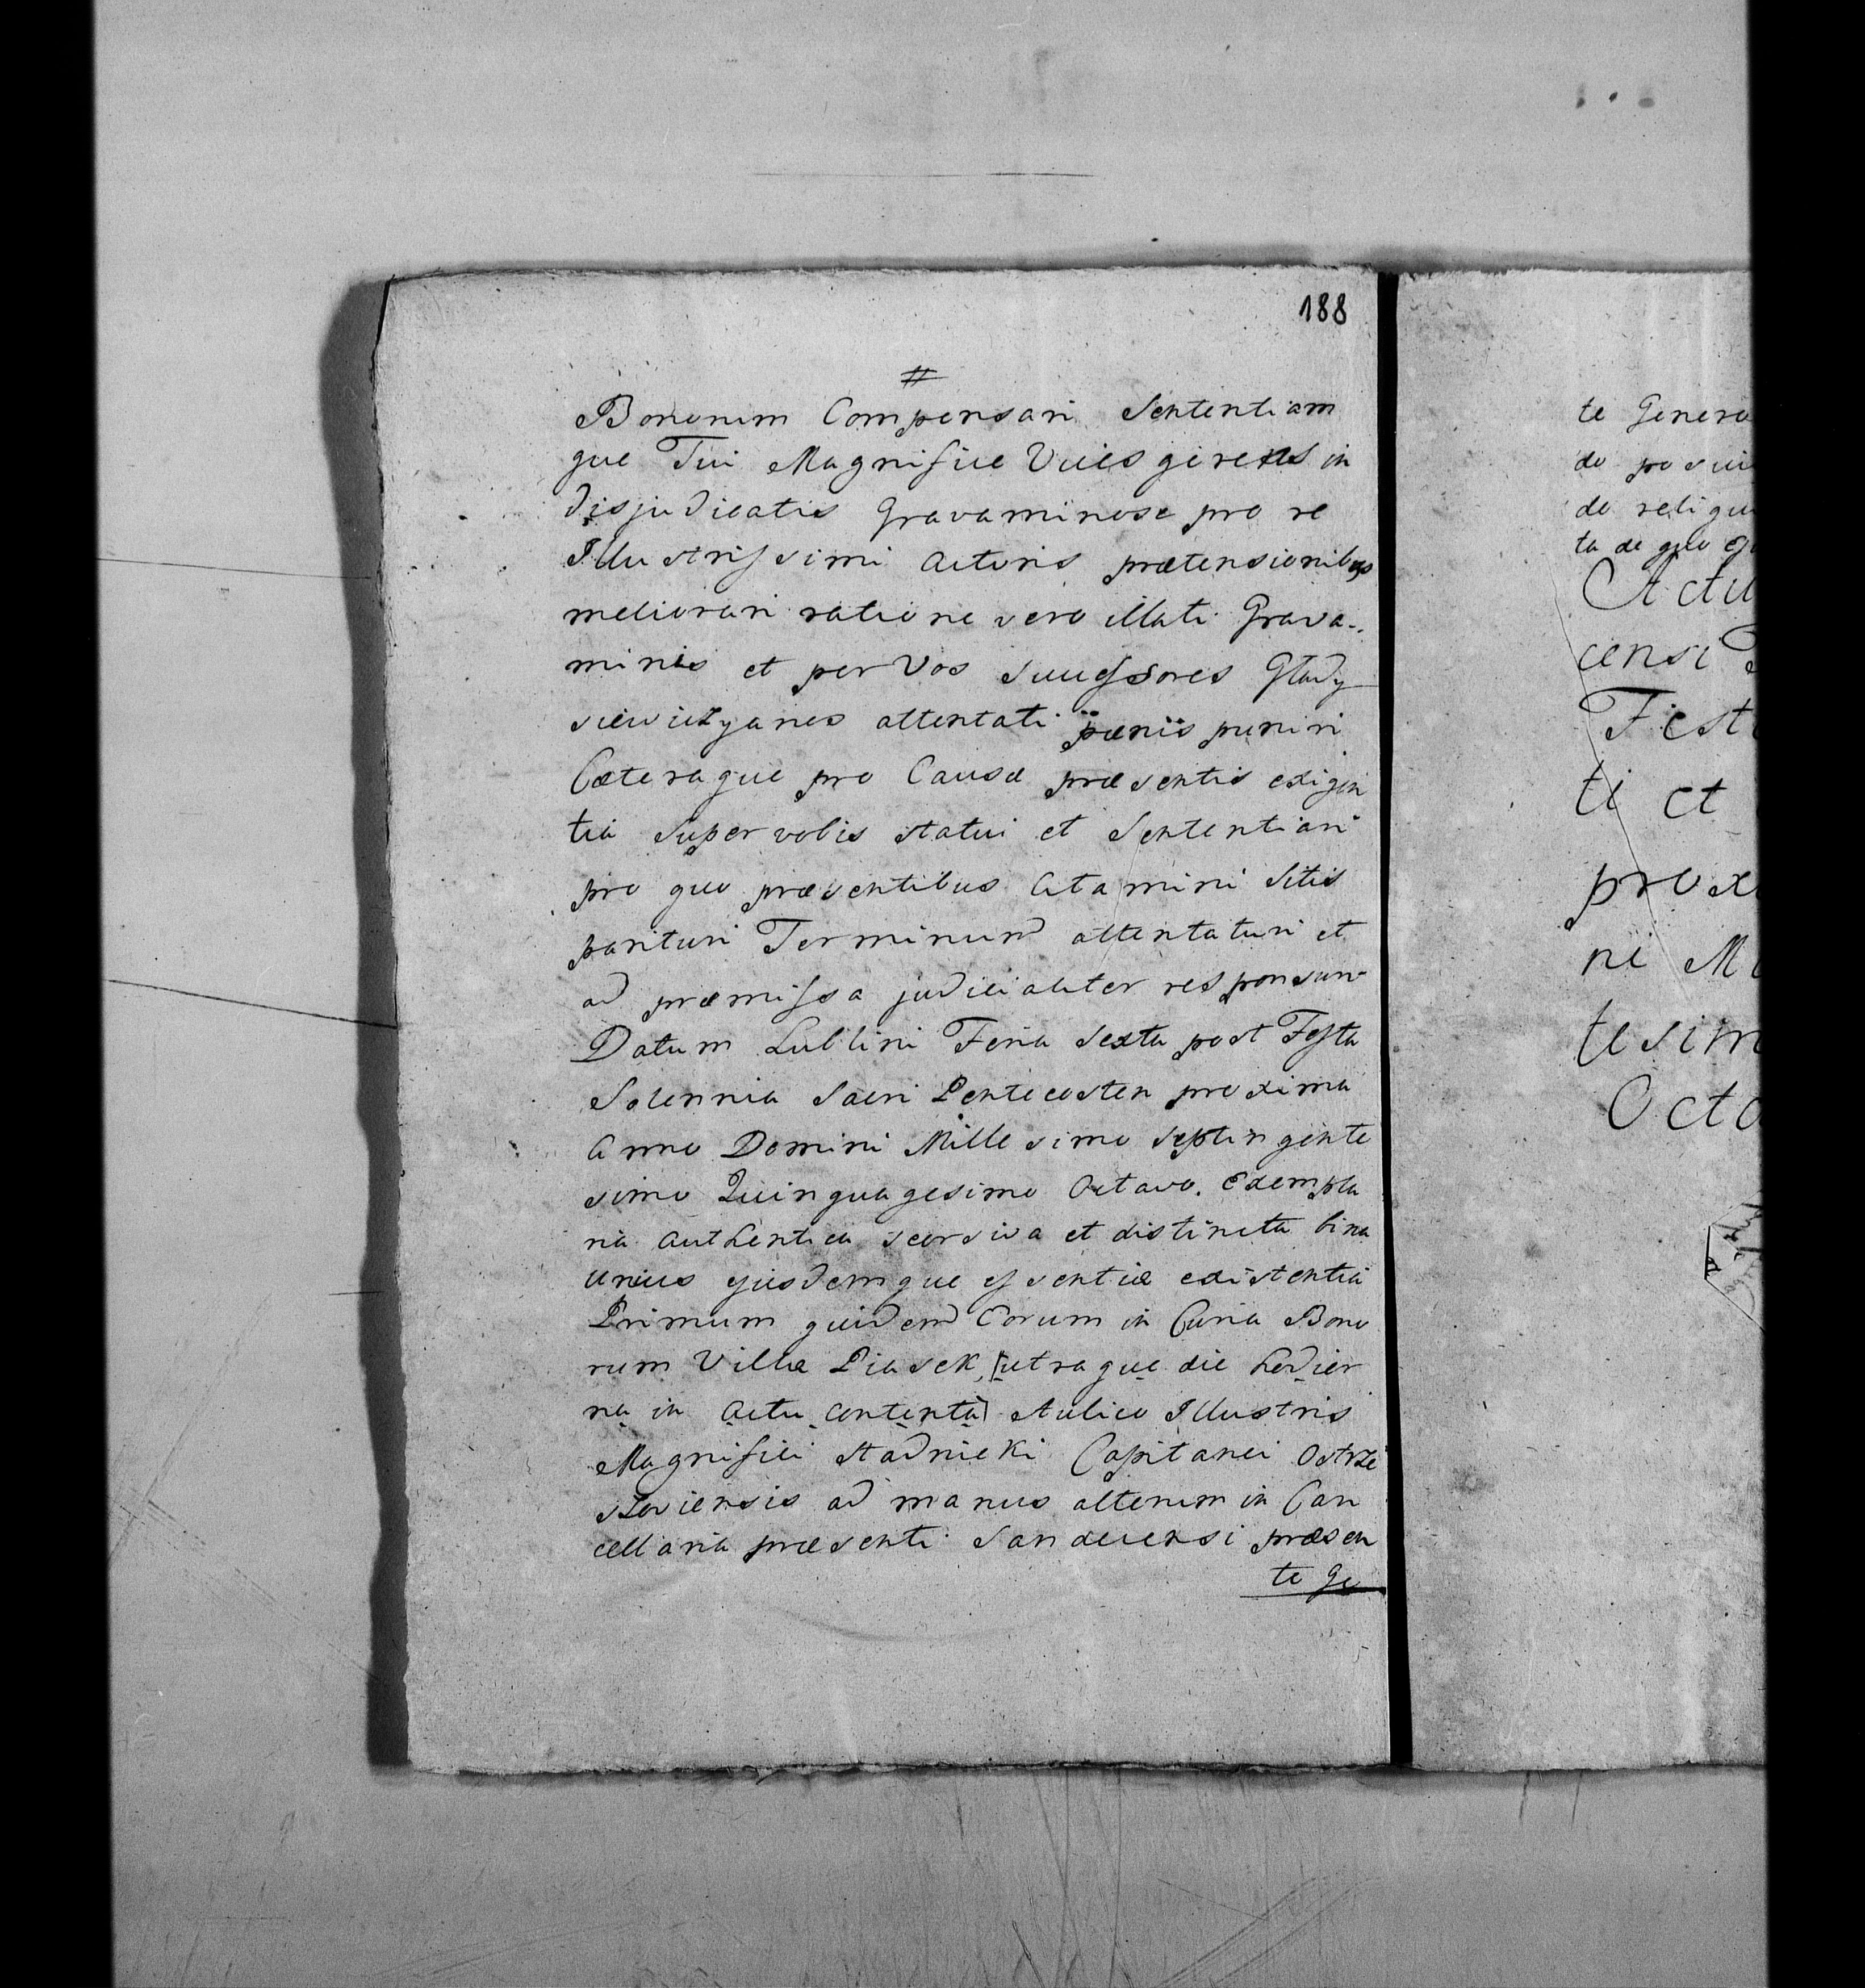 188
#
Bonorum Compensari Sententiam
que Tui Magnifice Vices gerens in
disjudicatis Gravaminose pro re
Illustrissimi Actoris prætensionibus
meliorari ratione vero illati Grava-
minis et per Vos Successores Glady
siewiczyanos attentati pœnis puniri
Cæteraque pro Causæ præsentis exigen
tia super vobis statui et Sententiari
pro quo præsentibus Citamini Sitis
parituri Terminum attentaturi et
ad præmissa judicialiter responsuri
Datum Lublini Feria Sexta post Festa
Solennia Sacri Pentecosten proxima
Anno Domini Millesimo Septingente
simo Quinquagesimo Octavo. Exempla
ria authentica seorsiva et distincta bina
unius ejusdemque essentiæ existentia
Primum quidem Eorum in Curia Bono
rum Villæ Piasek, [utraque die hodier
na in Actu contenta] Aulico Illustris
Magnifici Stadnicki Capitanei Ostrze
szoviensis ad manus alterum in Can
cellaria præsenti Sandecensi præsen
te Ge
te Genero
do posui
de reliqu
ta de quo
Actu
censi
Fest
ti et
prox
ni M
tesim
Octa